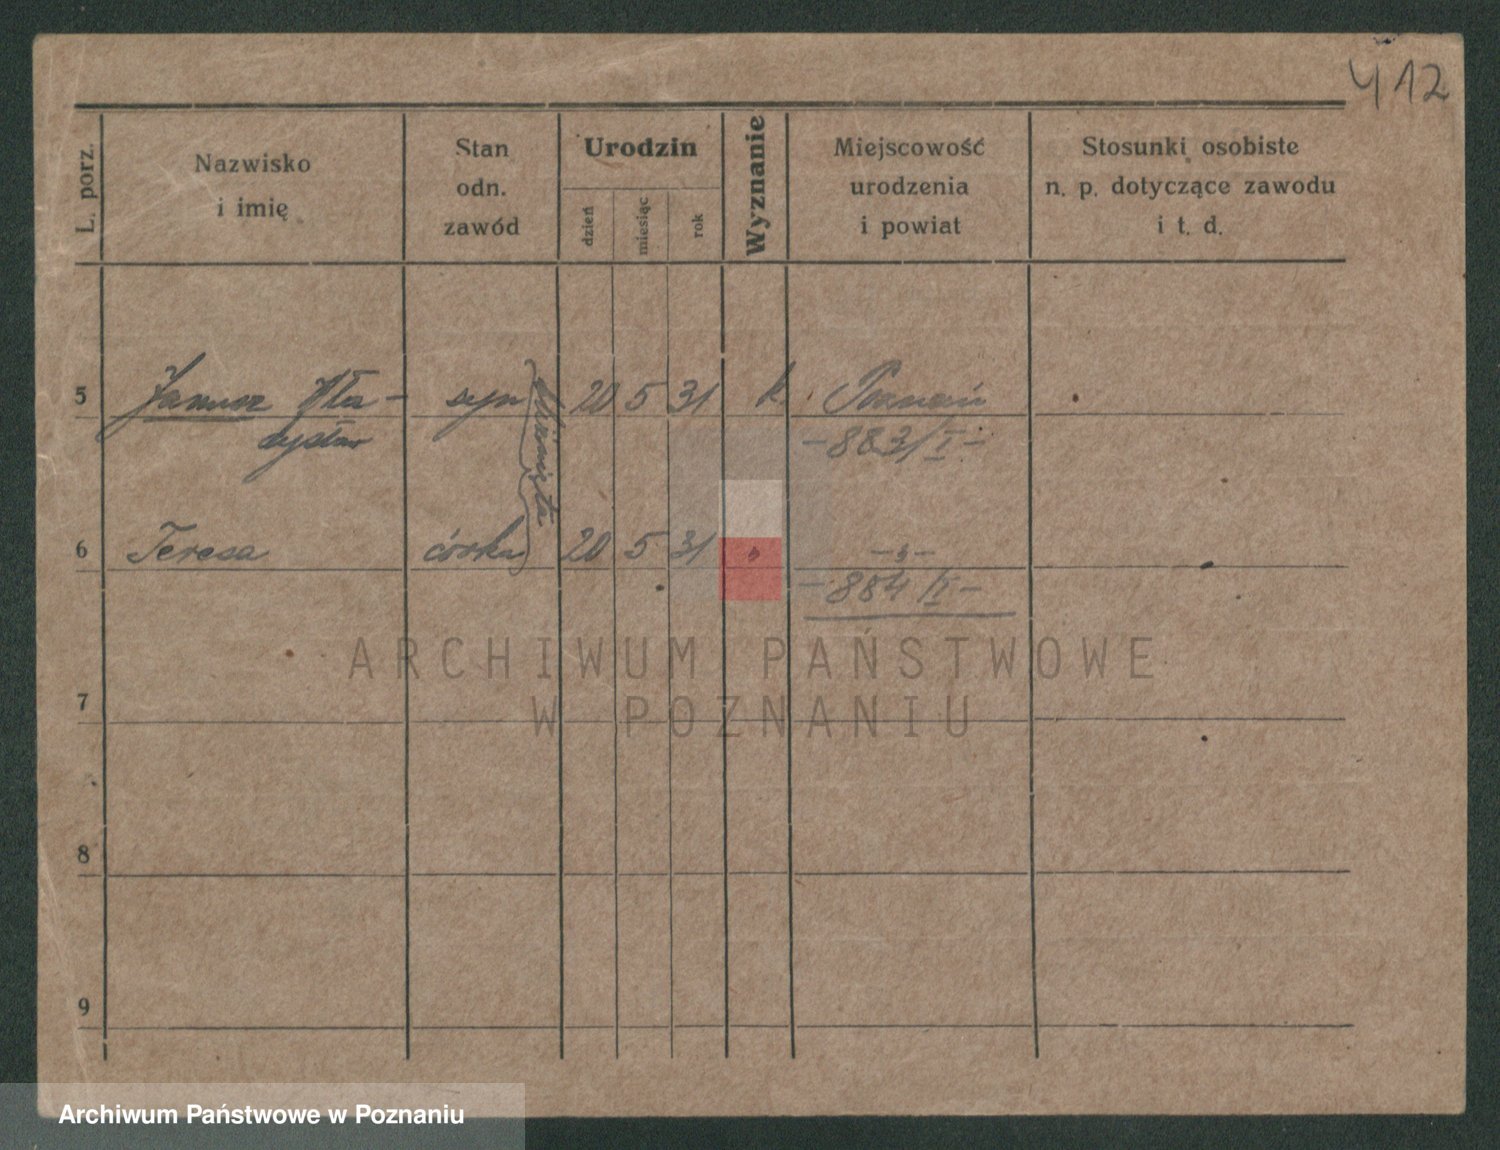 412
L. porz.
Nazwisko
i imię
Stan
odn.
zawód
Urodzin
dzień
miesiąc
rok
Wyznanie
Miejscowość
urodzenia
i powiat
Stosunki osobiste
n. p. dotyczące zawodu
i t. d.
5 Janusz Wła- syn 20 5 31 k Poznań
dysław -883/I-
bliźnięta
6 Teresa córka 20 5 31 " -"-
-884/I-
ARCHIWUM PAŃSTWOWE
W POZNANIU
7
8
9
Archiwum Państwowe w Poznaniu